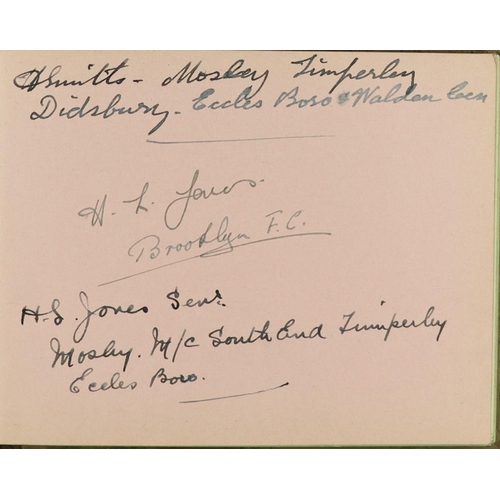 HSmitts - Mosley Timperley
Didsbury - Eccles Boro & Walden
H. L. Jones.
Brooklyn F.C.
H.S. Jones Senr
Mosley. M/c South End Timperley
Eccles Boro.